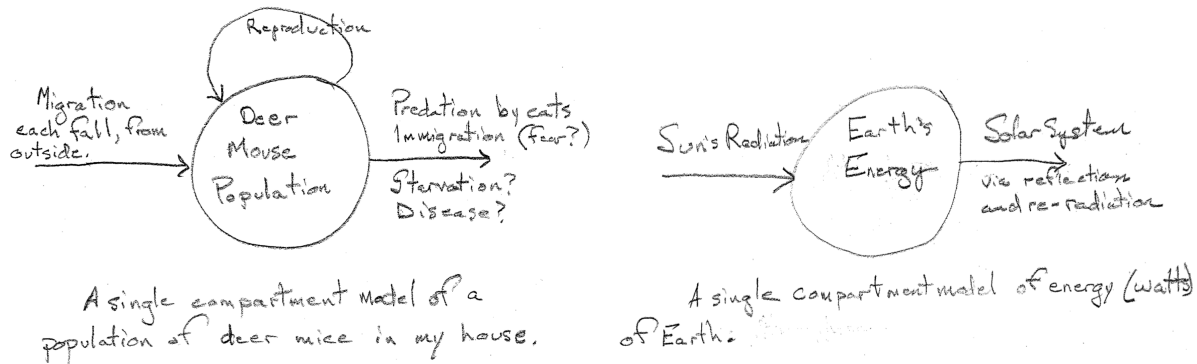 Reproduction
Migration
each fall, from
outside.
Deer
Mouse
Population
Predation by cats
Immigration (fear?)
Starvation?
Disease?
A single compartment model of a
population of deer mice in my house.
Sun's Radiation
Earth's
Energy
Solar System
via reflection
and re-radiation
A single compartment model of energy (watts)
of Earth.